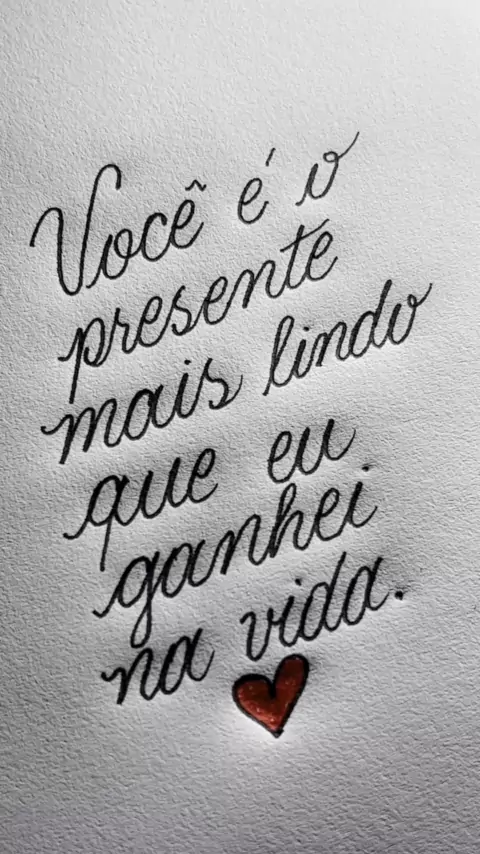 Você é o
presente
mais lindo
que eu
ganhei
na vida.